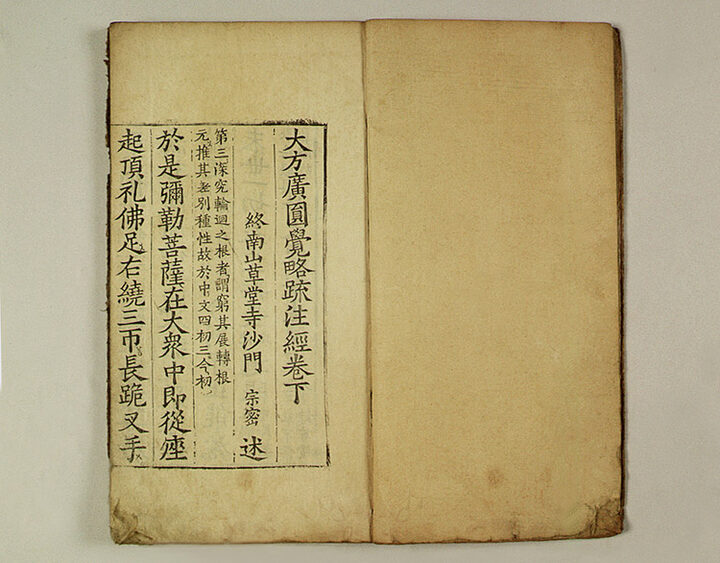 大方廣圓覺略疏注經卷下
終南山草堂寺沙門 宗密 述
第三深究輪迴之根者謂窮其展轉根
元推其差別種性故於中文四初三今初
於是彌勒菩薩在大衆中即從座
起頂礼佛足右繞三帀長跪叉手